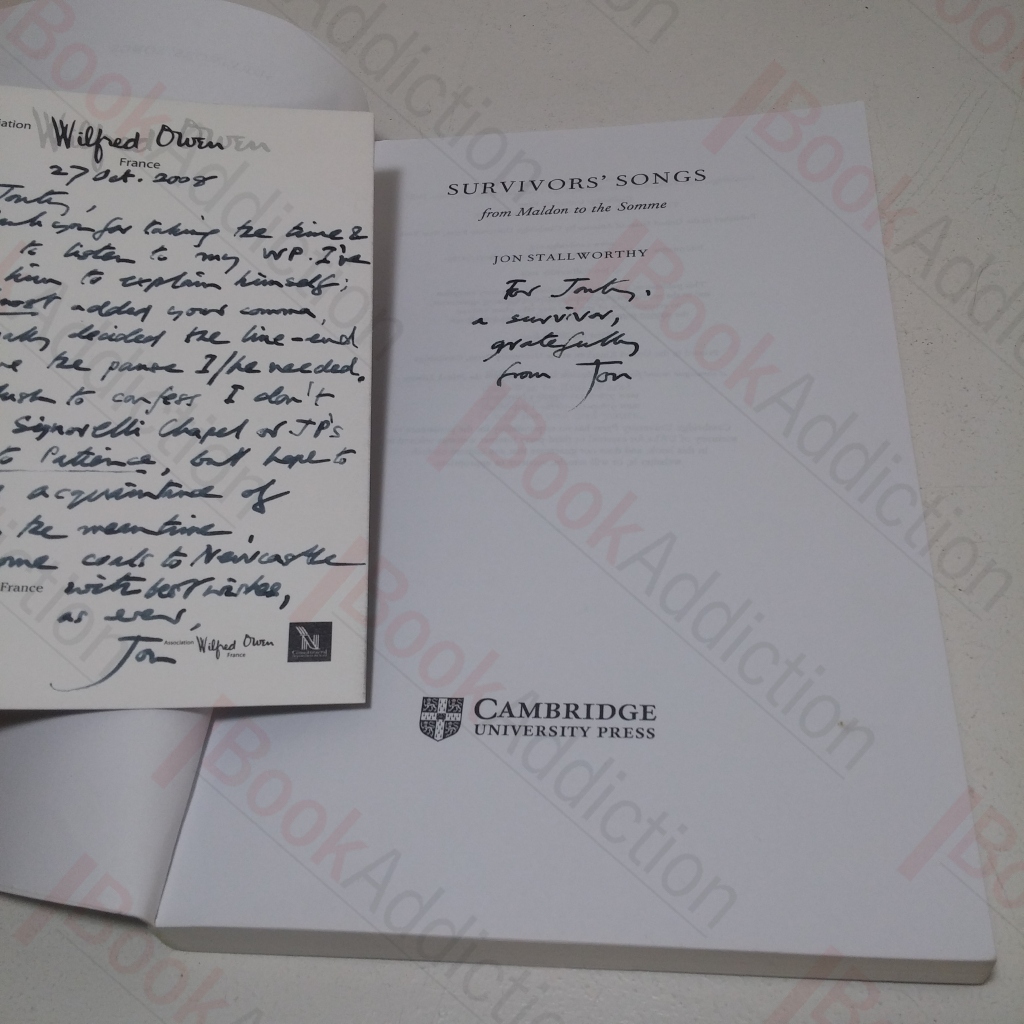 Wilfred Owen
France
27 Oct. 2008
Jonty,
for taking the time &
to listen to my WP. I've
him to explain himself;
most added your comma,
decided the line-end
the pause I/he needed.
to confess I don't
Signorelli Chapel or JP's
to Patience, but hope to
acquaintance of
the meantime,
some coals to Newcastle
France
with best wishes,
as ever,
Jon
Association Wilfred Owen
France
SURVIVORS' SONGS
from Maldon to the Somme
JON STALLWORTHY
For Jonty,
a survivor,
gratefully
from Jon
CAMBRIDGE
UNIVERSITY PRESS
BookAddiction